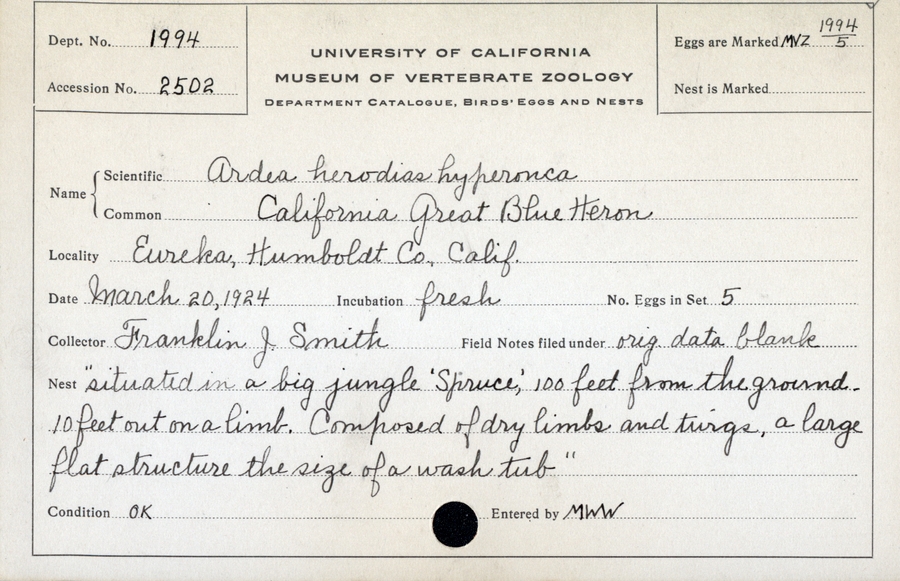 Dept. No. 1994
Accession No. 2502
UNIVERSITY OF CALIFORNIA
MUSEUM OF VERTEBRATE ZOOLOGY
DEPARTMENT CATALOGUE, BIRDS' EGGS AND NESTS
Eggs are Marked MVZ 1994/5
Nest is Marked
Name
Scientific Ardea herodias hyperonca
Common California Great Blue Heron
Locality Eureka, Humboldt Co., Calif.
Date March 20, 1924 Incubation fresh No. Eggs in Set 5
Collector Franklin J. Smith Field Notes filed under orig data blank
Nest "situated in a big jungle 'Spruce', 100 feet from the ground.
10 feet out on a limb. Composed of dry limbs and twigs, a large
flat structure the size of a wash tub"
Condition OK Entered by MWW